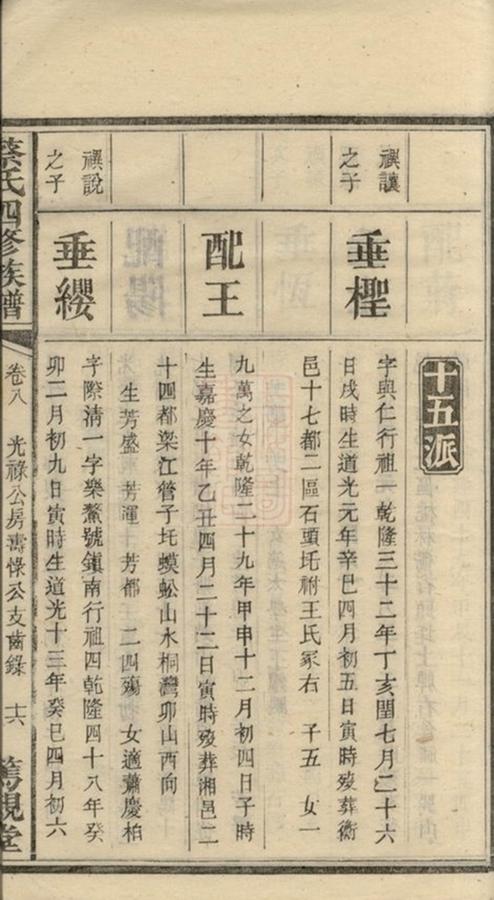 十五派
禩讓
之子
垂㮚
字與仁行祖一乾隆三十二年丁亥閏七月二十六
日戌時生道光元年辛巳四月初五日寅時歿葬衡
邑十七都二區石頭圫祔王氏冢右 子五 女一
配王
九萬之女乾隆二十九年甲申十二月初四日子時
生嘉慶十年乙丑四月二十二日寅時歿葬湘邑二
十四都梁江管子圫蟆蚣山水桐灣卯山酉向
生芳盛 芳渾 芳都 二四殤 女適蕭慶柏
禩說
之子
垂纓
字際清一字樂鰲號鎮南行祖四乾隆四十八年癸
卯二月初九日寅時生道光十三年癸巳四月初六
蔡氏四修族譜
卷八 光祿公房壽祿公支齒錄 十六 篤親堂